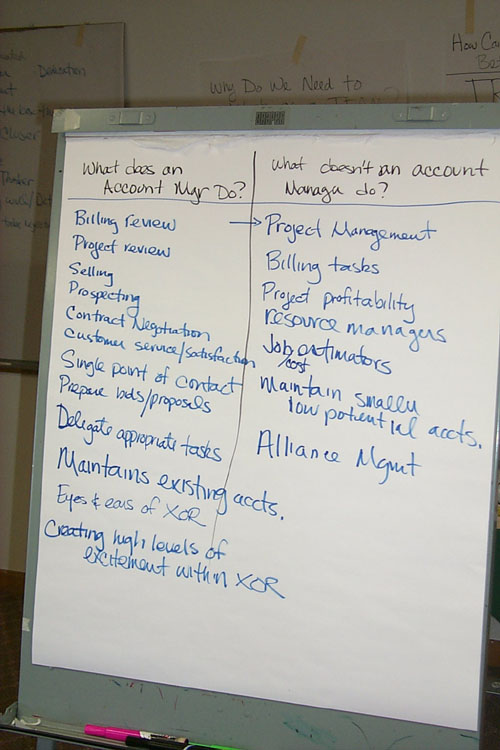 Dedication
Why Do We Need to
How Ca
What does an
Account Mgr Do?
Billing review
Project review
Selling
Prospecting
Contract Negotiation
Customer service/satisfaction
Single point of contact
Prepare bids/proposals
Delegate appropriate tasks
Maintains existing accts.
Eyes & ears of XOR
Creating high levels of
excitement within XOR
What doesn't an account
Manager do?
→ Project Management
Billing tasks
Project profitability
resource managers
Job estimators
/cost
Maintain smaller
low potential accts.
Alliance Mgmt